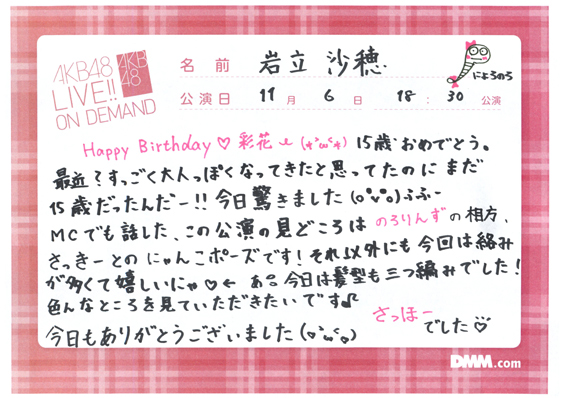 AKB48
LIVE!!
ON DEMAND
AKB
48
名前 岩立 沙穂
にょろのろ
公演日 11月 6日 18:30 公演
Happy Birthday♡彩花 (*'ω'*) 15歳おめでとう。
最近?すっごく大人っぽくなってきたと思ってたのにまだ
15歳だったんだー!!今日驚きました(o'v'o)ふふー
MCでも話した、この公演の見どころは のろりんずの相方、
さっきーとのにゃんこポーズです!それ以外にも今回は絡み
が多くて嬉しいにゃ♡← あ。今日は髪型も三つ編みでした!
色んなところを見ていただきたいです♪
さっほー
今日もありがとうございました(o'ω'o) でした♡
DMM.com